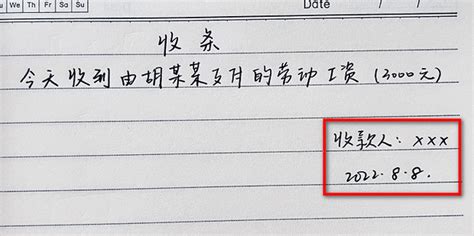 We Th Fr Sa Su
Date / /
收条
今天收到由胡某某支付的劳动工资（3000元）
收款人：×××
2022.8.8.